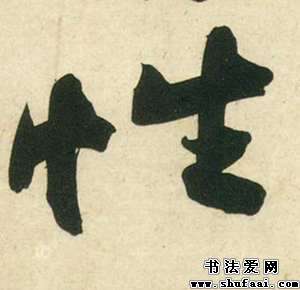 性
书法爱网
www.shufaai.com